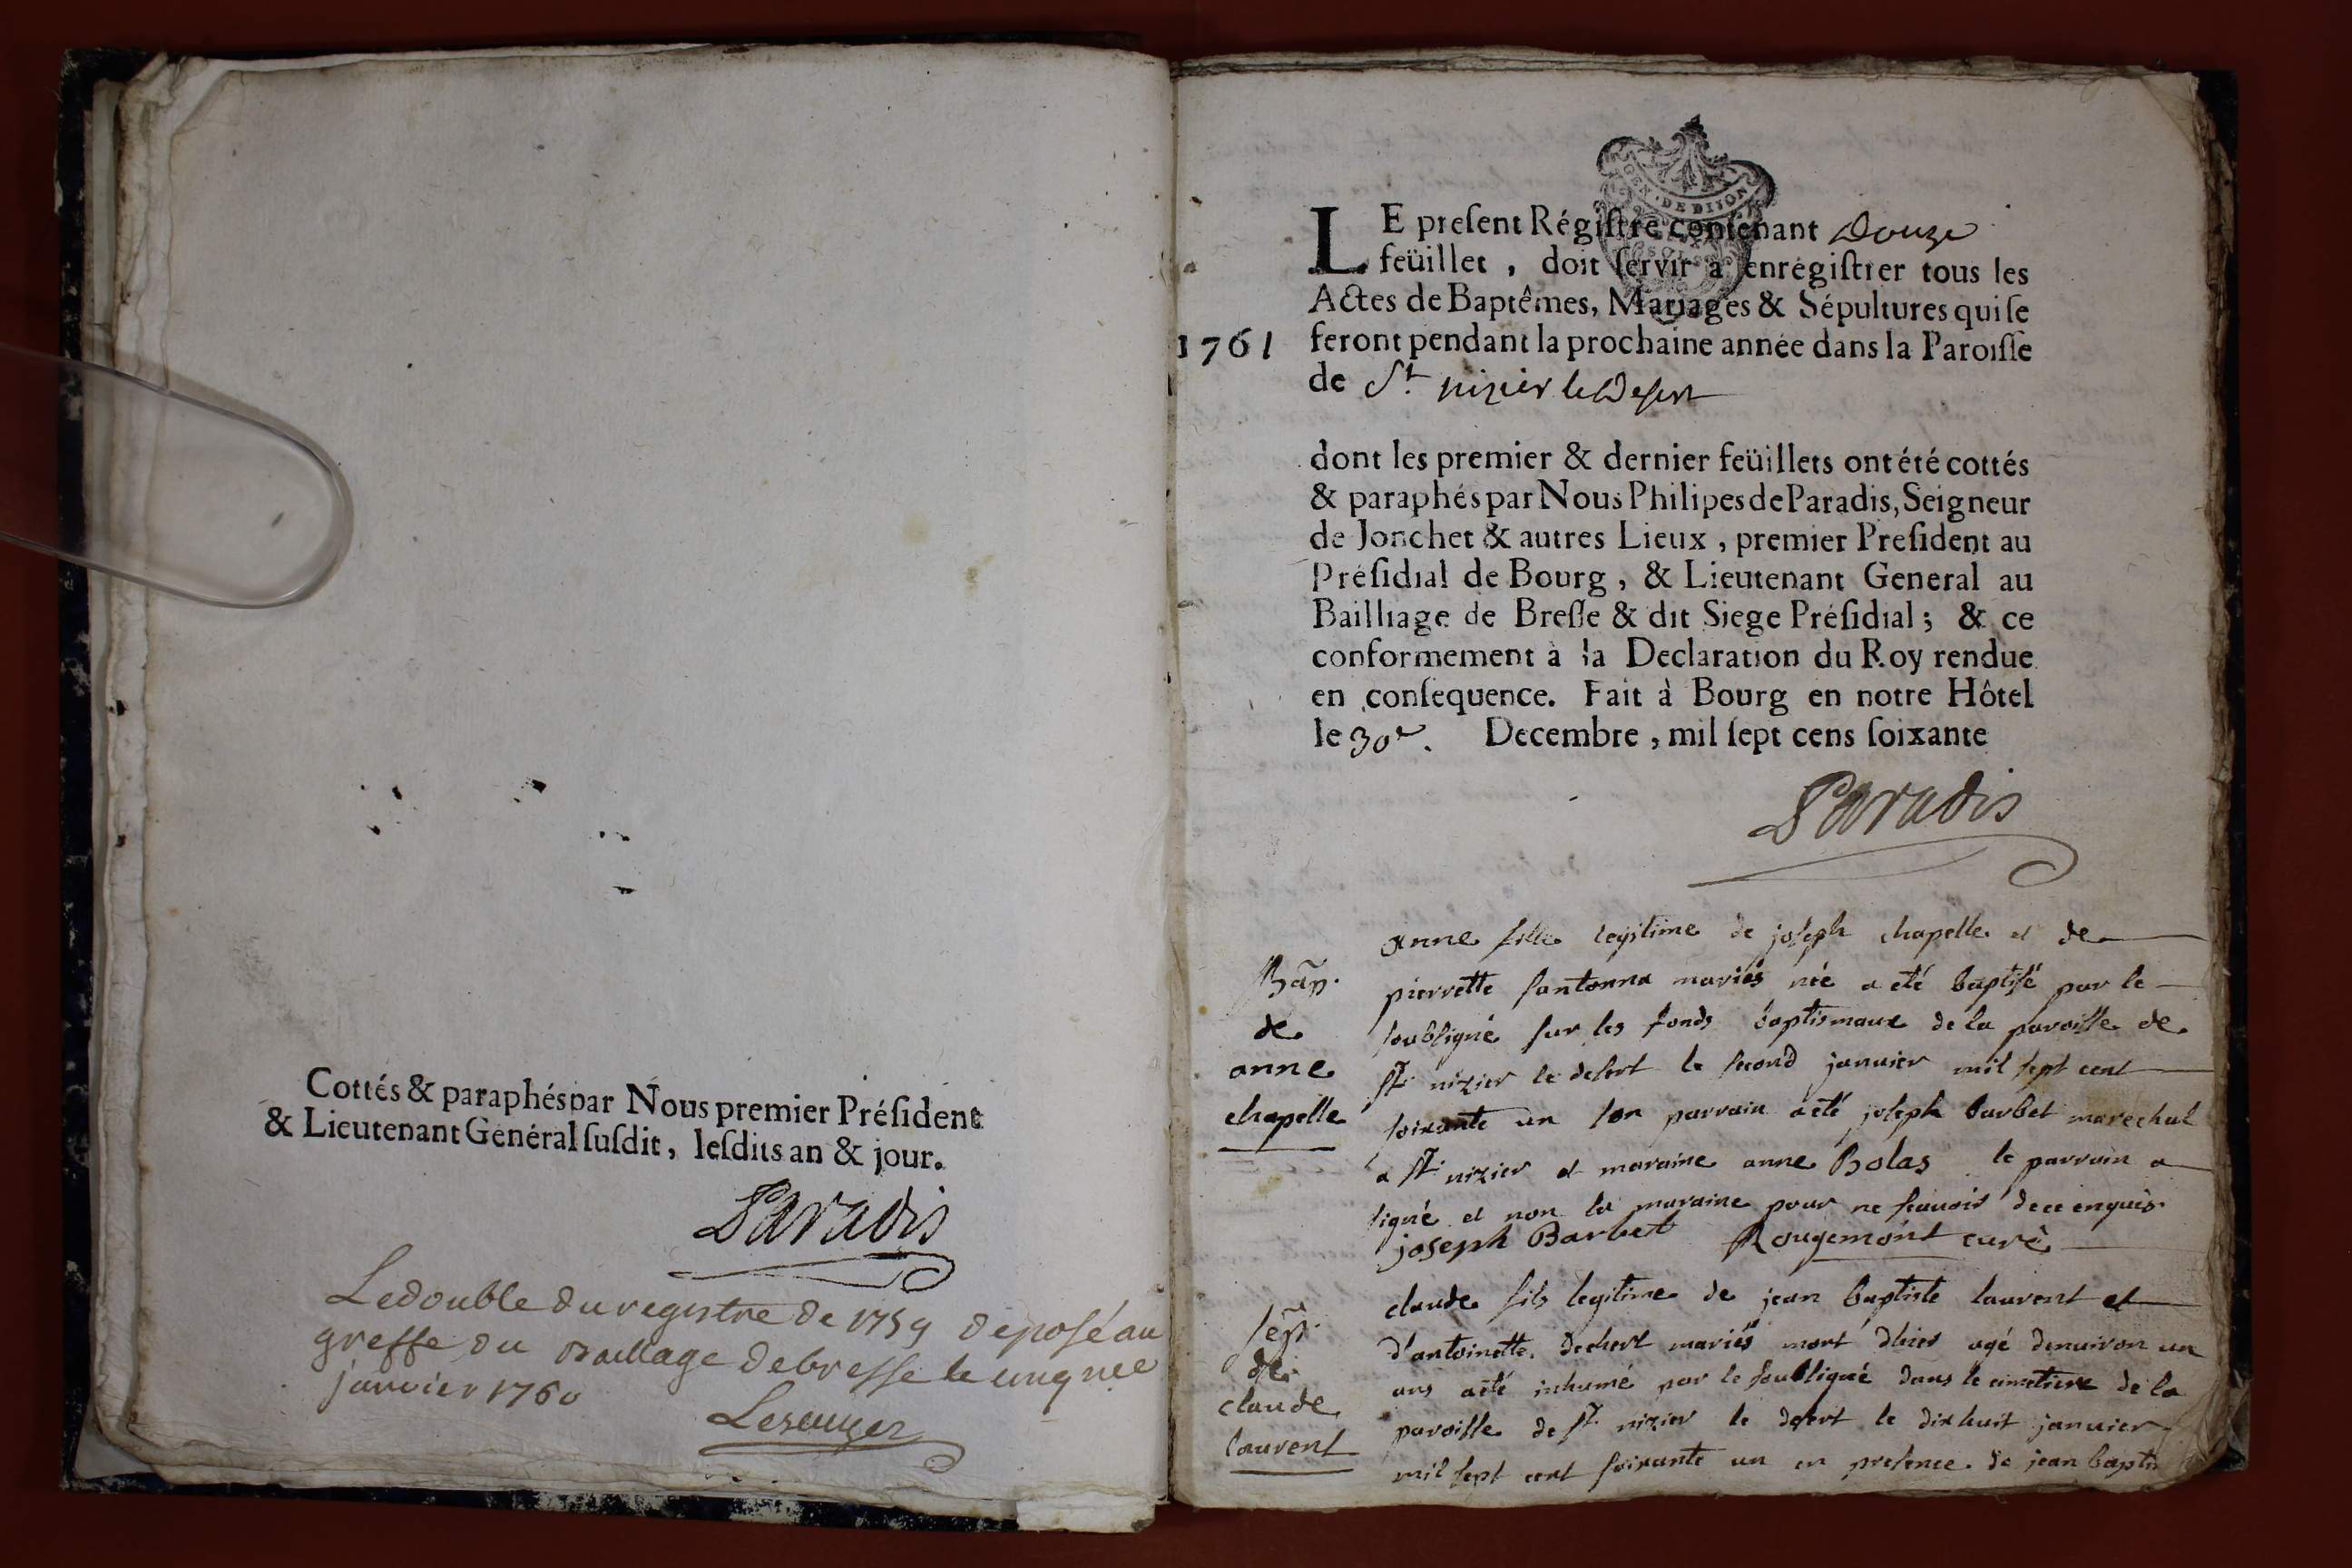 Cottés & paraphés par Nous premier Préſident
& Lieutenant Général ſuſdit, leſdits an & jour.
Paradis
Le double du registre de 1759 deposé au
greffe du Baillage de bresse le cinq me
janvier 1760
GEN. DE DIJON
LE preſent Régiſtre contenant Douze
feüillet , doit ſervir à enrégiſtrer tous les
Actes de Baptêmes, Mariages & Sépultures qui ſe
1761
feront pendant la prochaine année dans la Paroiſſe
de St. nizier le Desert
dont les premier & dernier feüillets ont été cottés
& paraphés par Nous Philipes de Paradis, Seigneur
de Jonchet & autres Lieux , premier Preſident au
Préſidial de Bourg , & Lieutenant General au
Bailliage de Breſſe & dit Siege Préſidial ; & ce
conformement à la Declaration du Roy rendue
en conſequence. Fait à Bourg en notre Hôtel
le 30e. Decembre , mil ſept cens ſoixante
Paradis
Bap.
de
anne
chapelle
anne fille legitime de joseph chapelle et de
pierrette fantonna mariés née a eté baptisé par le
soussigné sur les fonds baptismaux de la paroisse de
St. nizier le desert le second janvier mil sept cent
soixante un son parrain a eté joseph barbet marechal
a St. nizier et maraine anne Bolas le parrain a
signé et non la maraine pour ne scavoir de ce enquis
joseph Barbet Rougemont curé
sep.
de
claude
laurent
claude fils legitime de jean baptiste laurent et
d'antoinette dechert mariés mort d'hier agé d'environ un
ans a eté inhumé par le soussigné dans le cimetiere de la
paroisse de St. nizier le desert le dix huit janvier
mil sept cent soixante un en presence de jean baptis